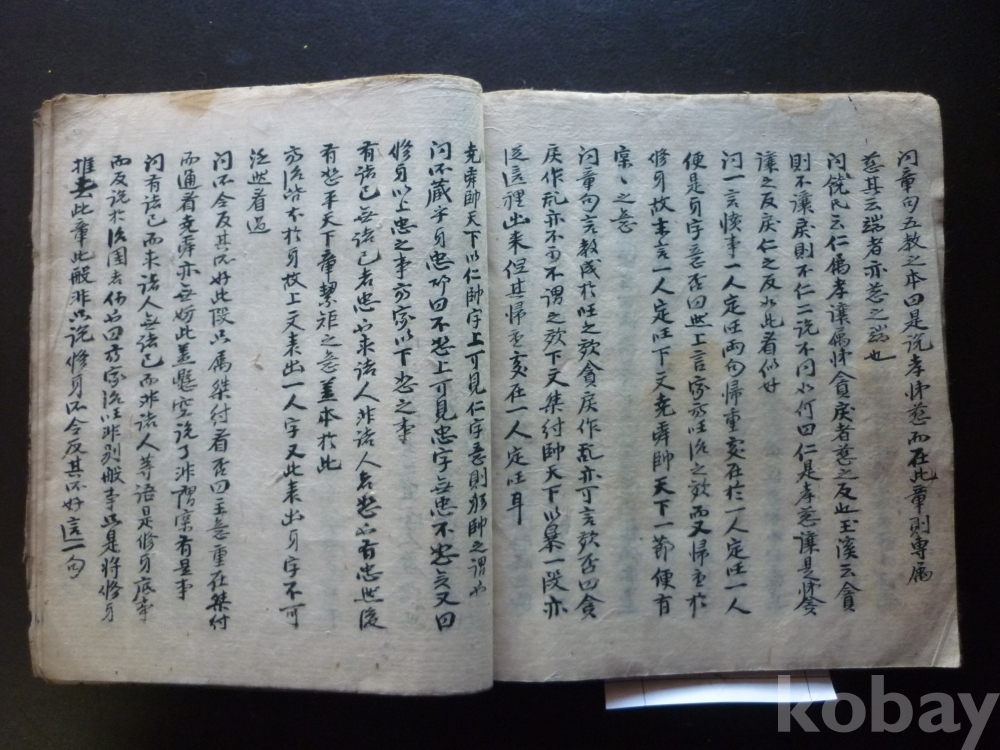 问章句五教之本曰是说孝悌慈而在此章則専属
慈其云端者亦慈之端也
问饒氏云仁属孝讓属悌貪戾者慈之反此玉溪云貪
則不讓戾則不仁二说不同如何曰仁是孝慈讓是悌貪
讓之反戾仁之反如此看似好
问一言僨事一人定国两句歸重處在於一人定国一人
便是身字意否曰然上言家齐国治之效而又歸重於
修身故末言一人定国下文尭舜帥天下一節便有
家之意
问章句言教成於国之效貪戾作乱亦可言效否曰貪
戾作乱亦不可不谓之效下文桀纣帥天下以暴一段亦
從這裡出来但其歸重處在一人定国耳
尭舜帥天下以仁帥字上可見仁字意則躬帥之谓也
问不蔵乎身忠所曰不恕上可見忠字無忠不恕意又曰
修身以上忠之事齐家以下恕之事
有诸己無诸己者忠也求诸人非诸人者恕也有忠然後
有恕平天下章絜矩之意盖本於此
齐治皆本於身故上文表出一人字又此表出身字不可
泛然看過
问不令反其所好此段只属桀纣看否曰主意重在桀纣
而通看尭舜亦無妨此盖懸空说了非谓实有是事
问有诸己而求诸人無诸己而非诸人等语是修身底事
而反说於治国者何曰齐家治国非别般事只是将修身
推去此章此般非只说修身不令反其所好這一句
kobay